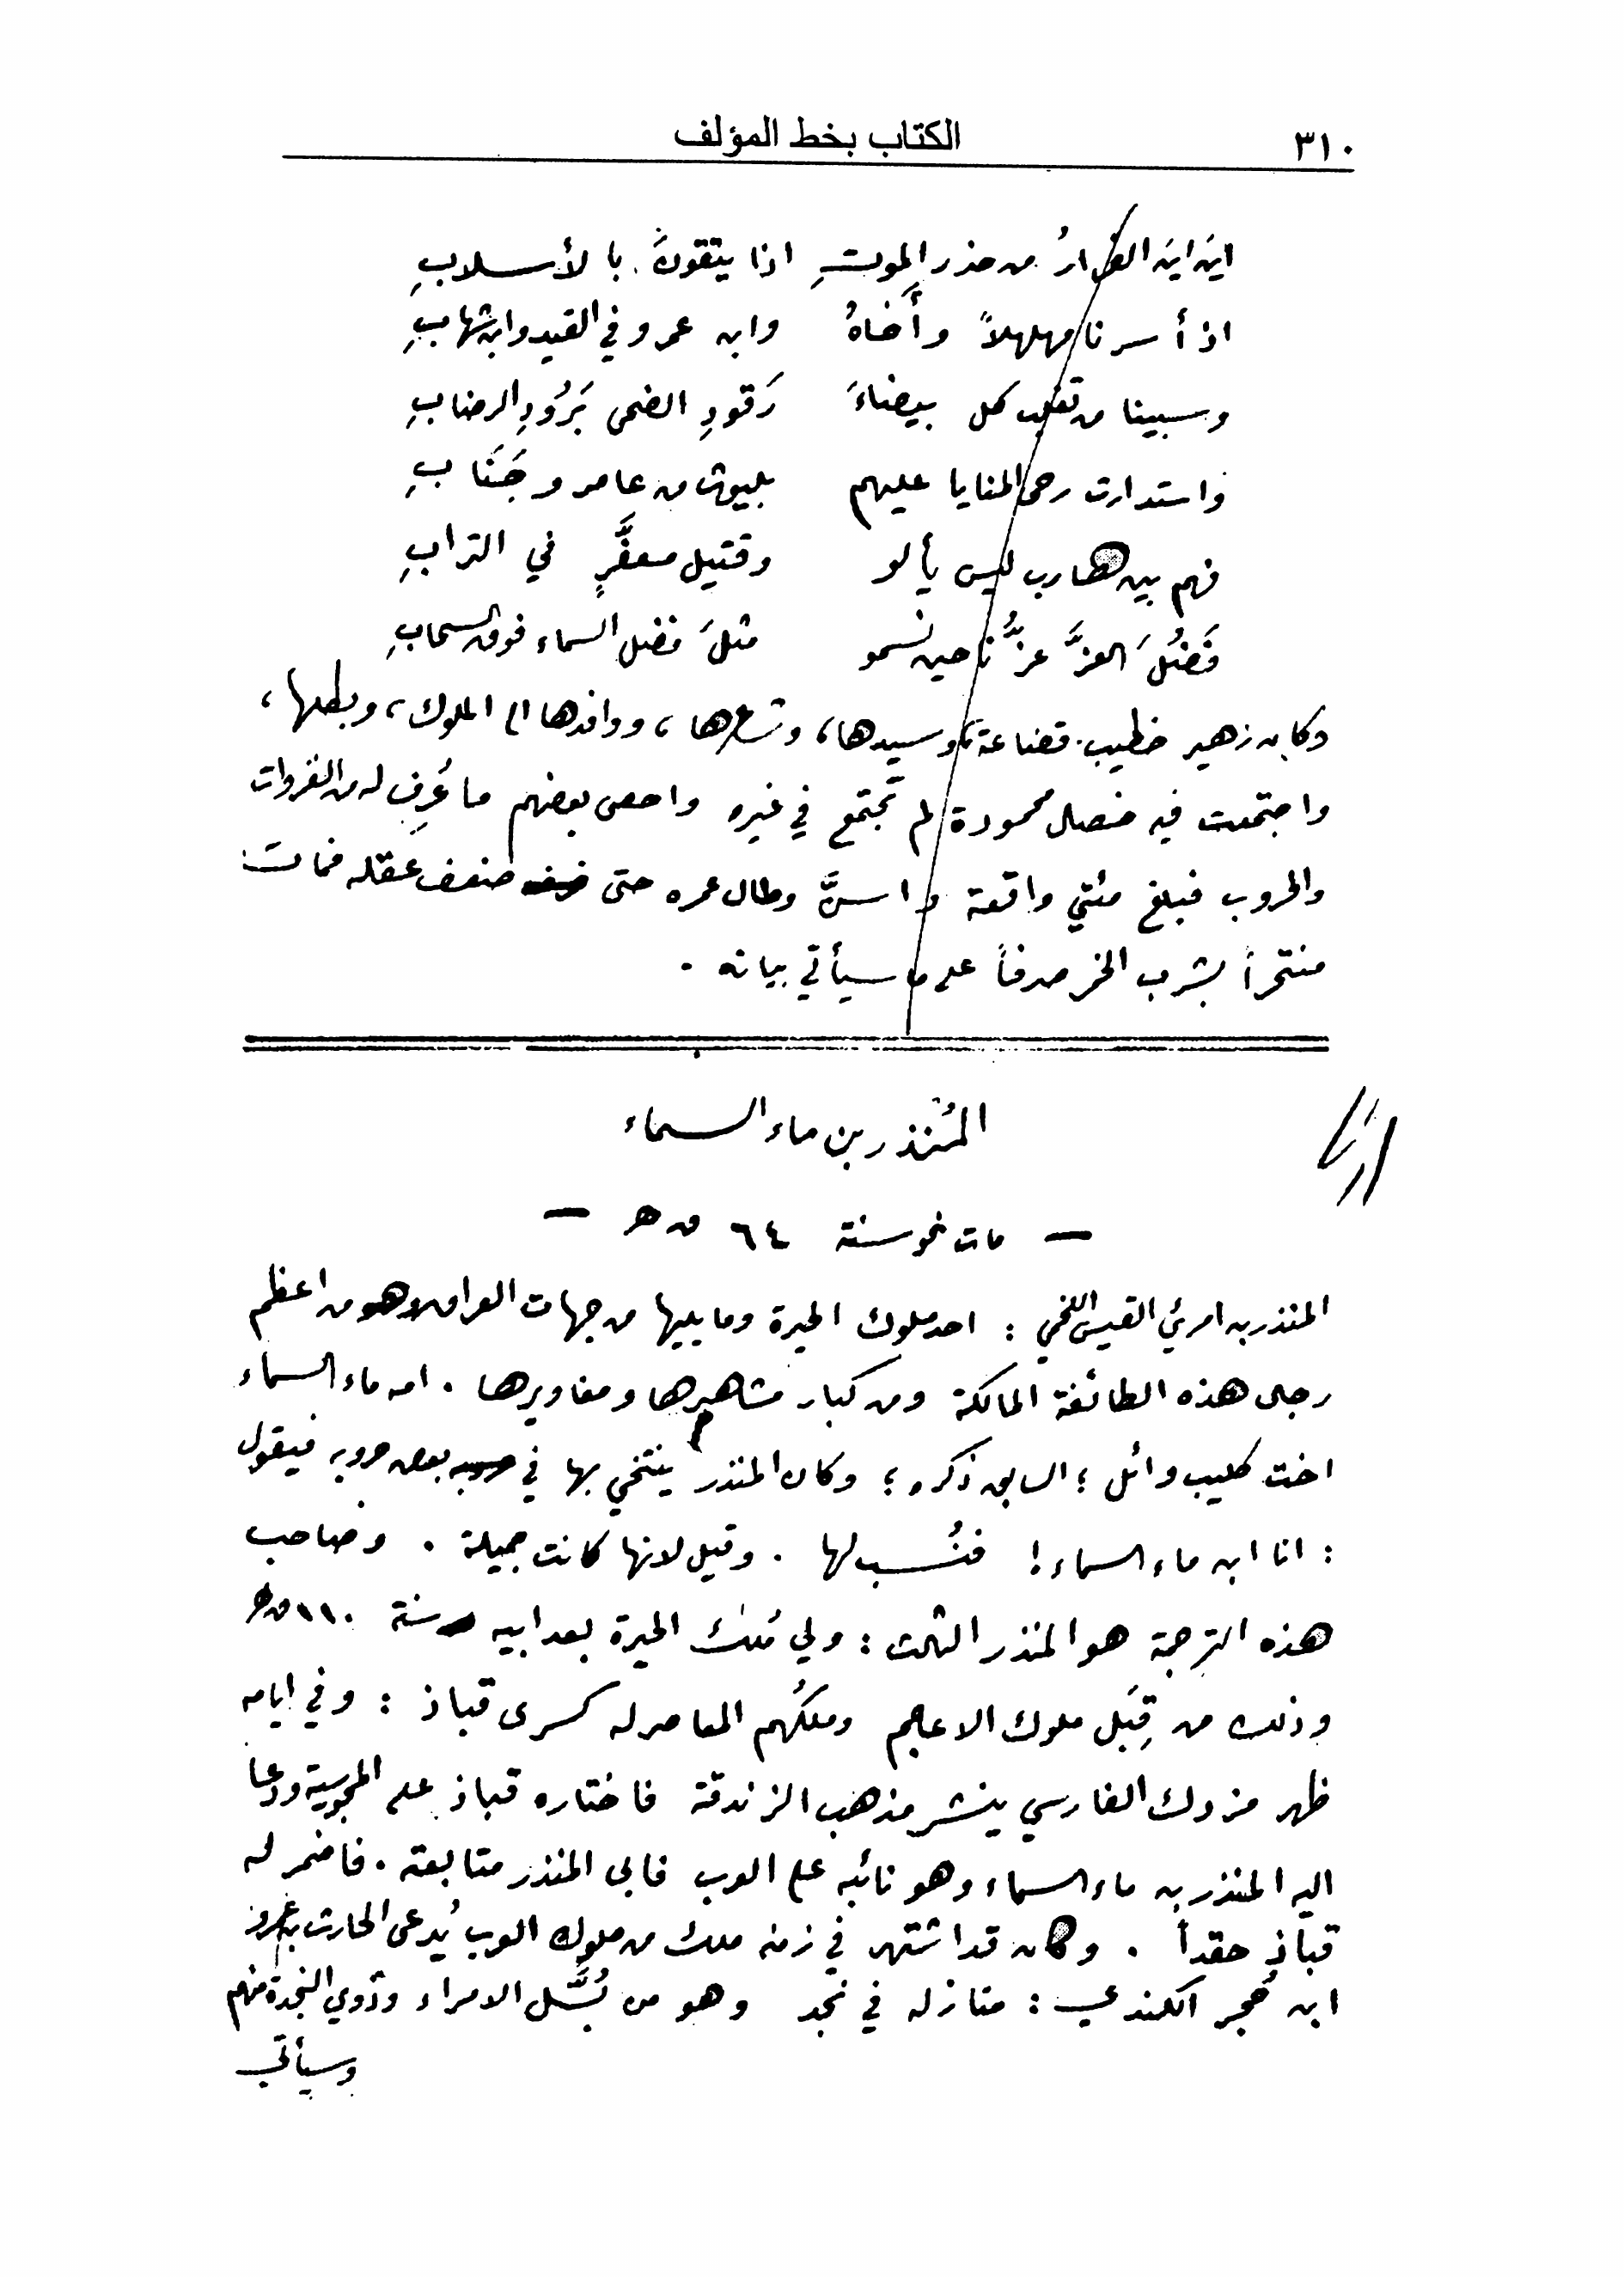 ٣١٠
الكتاب بخط المؤلف
اينَ اينَ الفرارُ من حذر الموتِ اذا يتقونَ بالأسلابِ
اذ أسرنا مهلهلاً وأخاهُ وابن عمرو في القيد وابن شهابِ
وسبينا من تغلب كل بيضاءَ رَقودِ الضحى بَرُودِ الرضابِ
واستدارت رحى المنايا عليهم بليوث من عامر وجَنَابِ
فهم بين هارب ليس يألو وقتيل معفَّرٍ في الترابِ
فَضُلَ العزَّ عزُّنا حين نسمو مثلَ فضل السماء فوق السحابِ
وكان زهير خطيب قضاعة، وسيدها، وشاعرها، ووافدها الى الملوك، وبطلها،
واجتمعت فيه خصال محمودة لم تجتمع في غيره واحصى بعضهم ما عُرِف له من الغزوات
والحروب فبلغ مئتي واقعة واسنَّ وطال عمره حتى ضعف عقله فمات
منتحراً بشرب الخمر صرفاً على ما سيأتي بيانه .
المُنذر بن ماء السماء
— مات نحو سنة ٦٤ ق ه —
المنذر بن امرئ القيس اللخمي : احد ملوك الحيرة وما يليها من جهات العراق وهو من اعظم
رجال هذه الطائفة المالكة ومن كبار مشاهيرها ومغاويرها . امه ماء السماء
اخت كليب وائل ؛ السابق ذكره ؛ وكان المنذر ينتخي بها في بعض حروبه فيقول
: انا ابن ماء السماء ! فنُسب لها . وقيل لانها كانت جميلة . وصاحب
هذه الترجمة هو المنذر الثالث : ولي مُلك الحيرة بعد ابيه سنة ١١٠ ق ه
وذلك من قِبَل ملوك الاعاجم وملكُهم المعاصر له كسرى قباذ : وفي ايامه
ظهر مزدك الفارسي ينشر مذهب الزندقة فاختاره قباذ على المجوسية ودعا
اليه المنذر بن ماء السماء وهو نائبه على العرب فابى المنذر متابعته . فاضمر له
قباذ حقداً . وكان قد اشتهر في زمنه ملك من ملوك العرب يُدعى الحارث بن عمرو
ابن حُجر الكندي : منازله في نجد وهو من بُسَّل الامراء وذوي النجدة منهم
وسيأتي